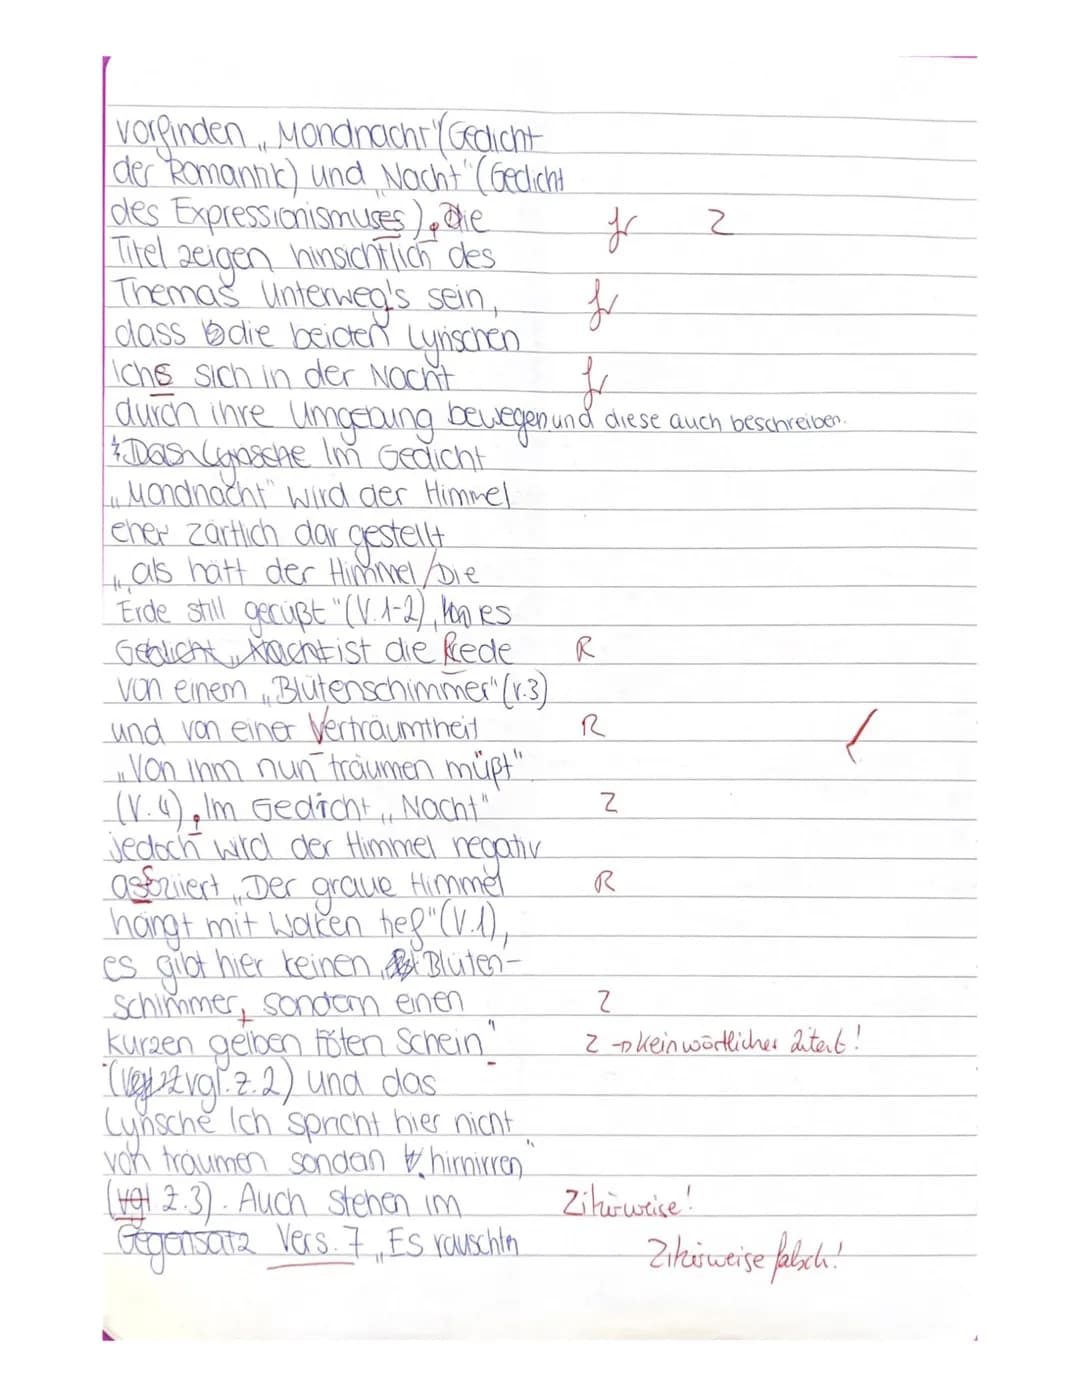 vorfinden „Mondnacht"(Gedicht
der Romantik) und „Nacht" (Gedicht
des Expressionismuses). Die fr Z
Titel zeigen hinsichtlich des
Themas Unterweg's sein, fr
dass die beiden Lyrischen
Ichs sich in der Nacht fr
durch ihre Umgebung bewegen und diese auch beschreiben.
Das Lyrische Im Gedicht
„Mondnacht" wird der Himmel
eher zärtlich dar gestellt
„als hätt der Himmel/Die
Erde still geküßt"(V.1-2), es
Gedicht „Nacht ist die Rede R
von einem „Blütenschimmer"(V.3)
und von einer Verträumtheit R
„Von ihm nun träumen müßt"
(V.4). Im Gedicht „Nacht" Z
jedoch wird der Himmel negativ
assoziiert „Der graue Himmel R
hängt mit Wolken tief"(V.1),
es gibt hier keinen „Blüten-
schimmer, sondern einen Z
kurzen gelben töten Schein" Z → kein wörtliches Zitat!
(vgl. Z.2) und das
Lyrische Ich spricht hier nicht
von träumen sondern „hinirren"
(vgl Z.3). Auch stehen im Zitierweise!
Gegensatz Vers. 7 „Es rauschtn Zitierweise falsch!